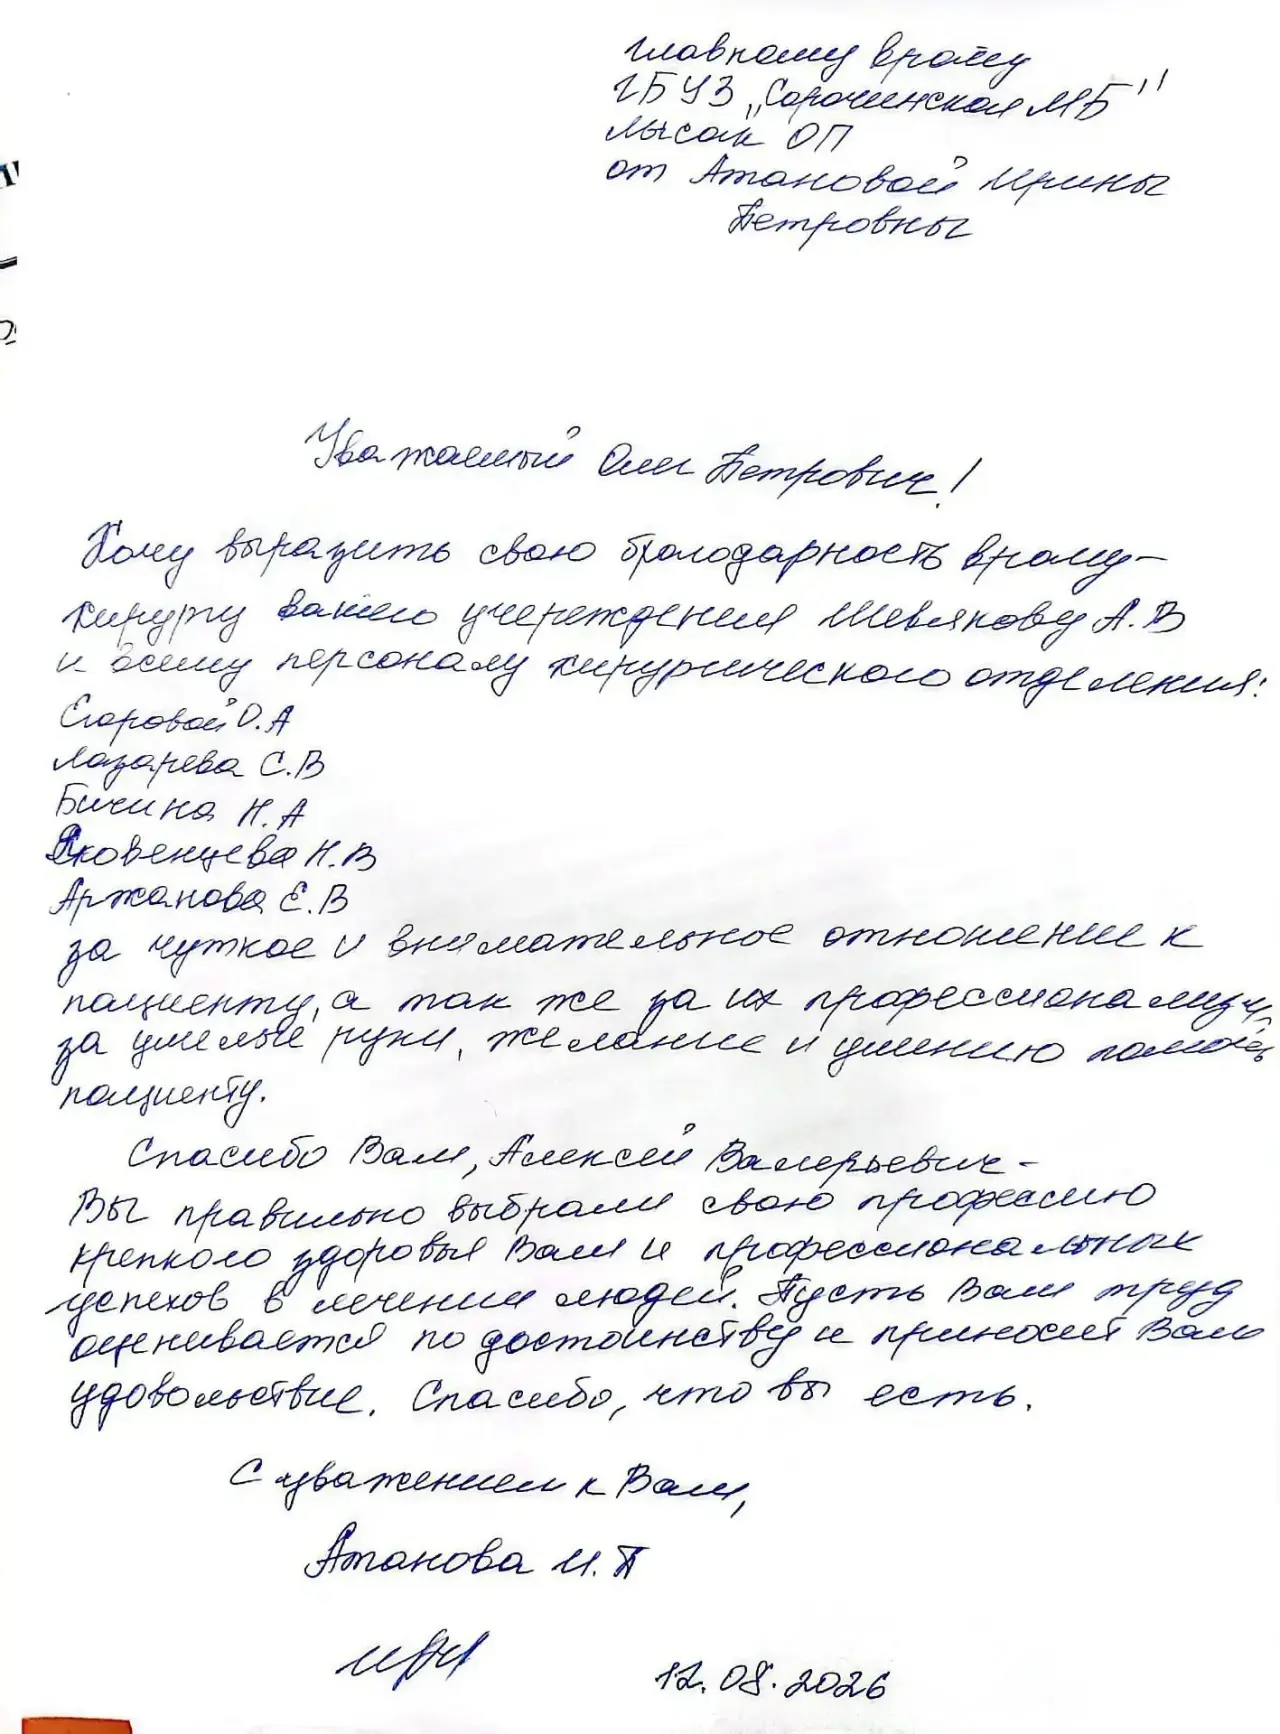 главному врачу
ГБУЗ „Сорочинская МБ"
Лысак ОП
от Атановой Ирины
Петровны
Уважаемый Олег Петрович!
Хочу выразить свою благодарность врачу-
хирургу вашего учереждения Шевлякову А.В
и всему персоналу хирургического отделения:
Егоровой О.А
Лазарева С.В
Бичина Н.А
Яковенцева Н.В
Аржанова Е.В
за чуткое и внимательное отношение к
пациенту, а так же за их профессионализм,
за умелые руки, желание и умению помочь
пациенту.
Спасибо Вам, Алексей Валерьевич -
Вы правильно выбрали свою профессию
крепкого здоровья Вам и профессиональных
успехов в лечении людей. Пусть Вам труд
оценивается по достоинству и приносит Вам
удовольствие. Спасибо, что вы есть.
С уважением к Вам,
Атанова И.П
12.08.2026